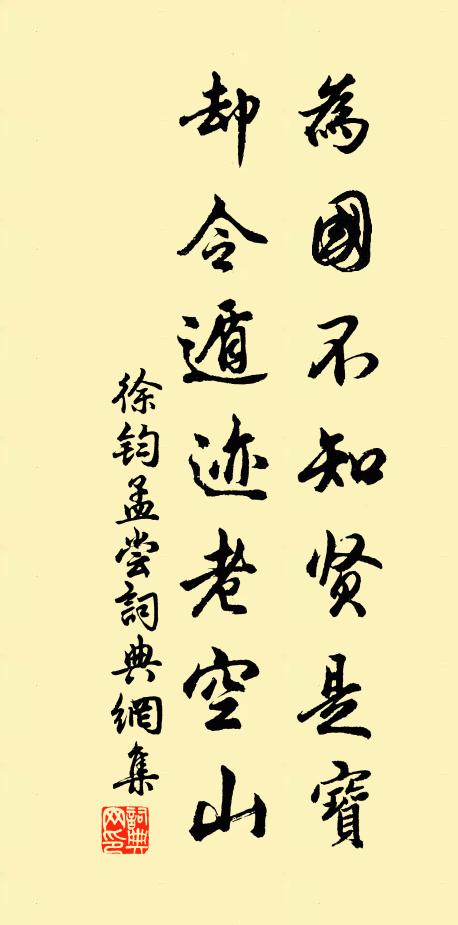 為國不知贤是寶
却令遁迹老空山
徐鈞孟尝詞典網集
詞典网印